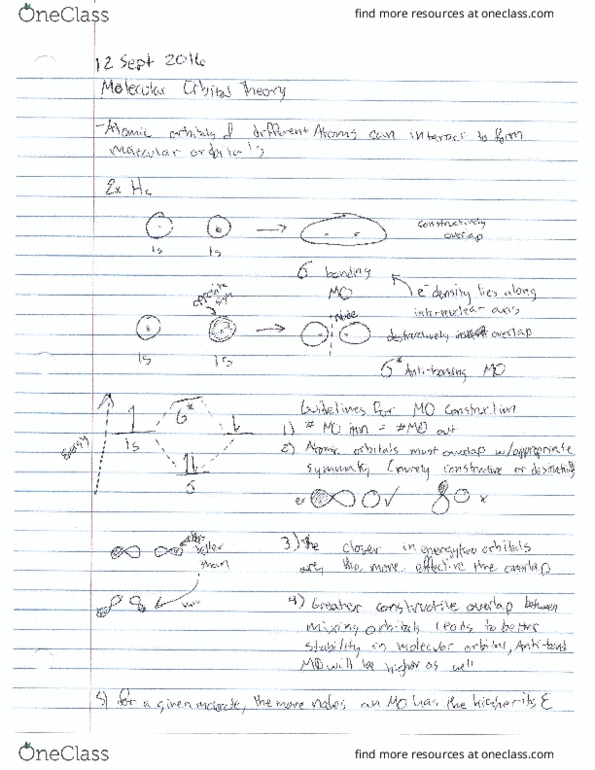 OneClass
find more resources at oneclass.com
12 Sept 2016
Molecular Orbital Theory
- Atomic orbitals of different Atoms can interact to form
molecular orbitals
Ex H₂
constructively
overlap
1s 1s
σ bonding
MO
e⁻ density lies along
internuclear axis
opposite
sign
Node
destructively overlap
1s 1s
σ* Anti-bonding MO
Energy
1s
σ*
σ
Guidelines for MO Construction
1) # MO in = # MO out
2) Atomic orbitals must overlap w/appropriate
symmetry (purely constructive or destructive)
ex ✓ x
better
than
3) the closer in energy two orbitals
are the more effective the overlap
4) Greater constructive overlap between
mixing orbitals leads to better
stability in molecular orbital, Anti-bond
MO will be higher as well
5) for a given molecule, the more nodes an MO has the higher its E
OneClass
find more resources at oneclass.com